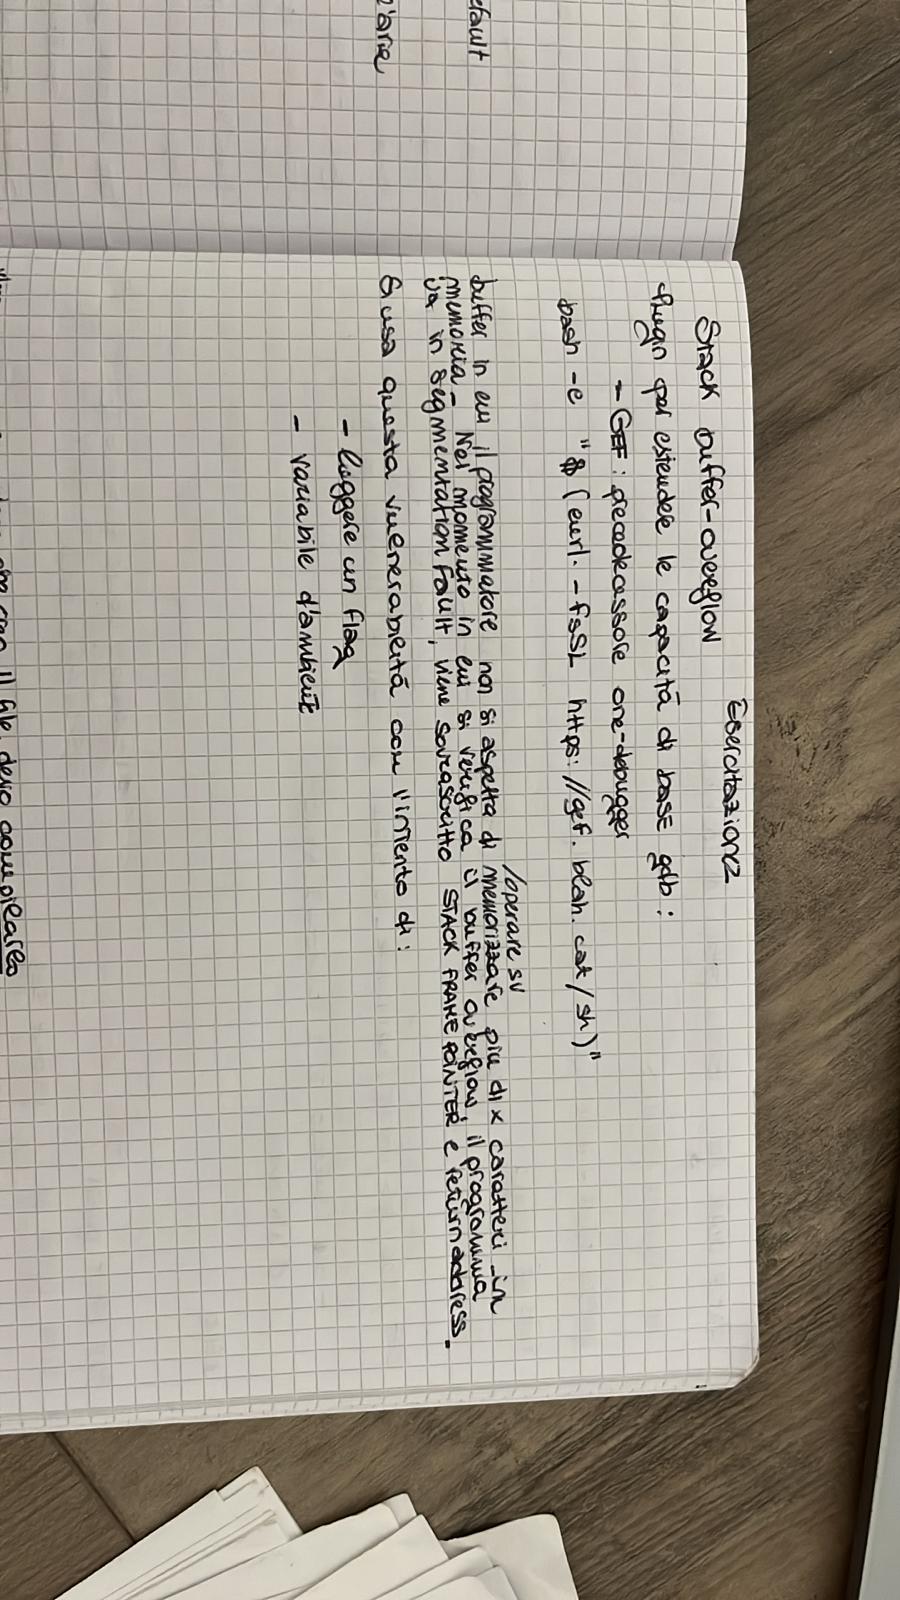 Esercitazione
Stack buffer-overflow
Plugin per estendere le capacità di base gdb :
- GEF : precedecassore one-debugger
bash -c "$ (curl. -fsSL https://gef.blah.cat/sh)"
/operare su
buffer in cui il programmatore non si aspetta di memorizzare più di x caratteri in
memoria_ Nel momento in cui si verifica il buffer overflow, il programma
va in segmentation fault, viene sovrascritto STACK FRAME POINTER e return address_
efault
Si usa questa vulnerabilità con l'intento di :
- leggere un flag
- variabile d'ambiente
con il file devo compilarlo